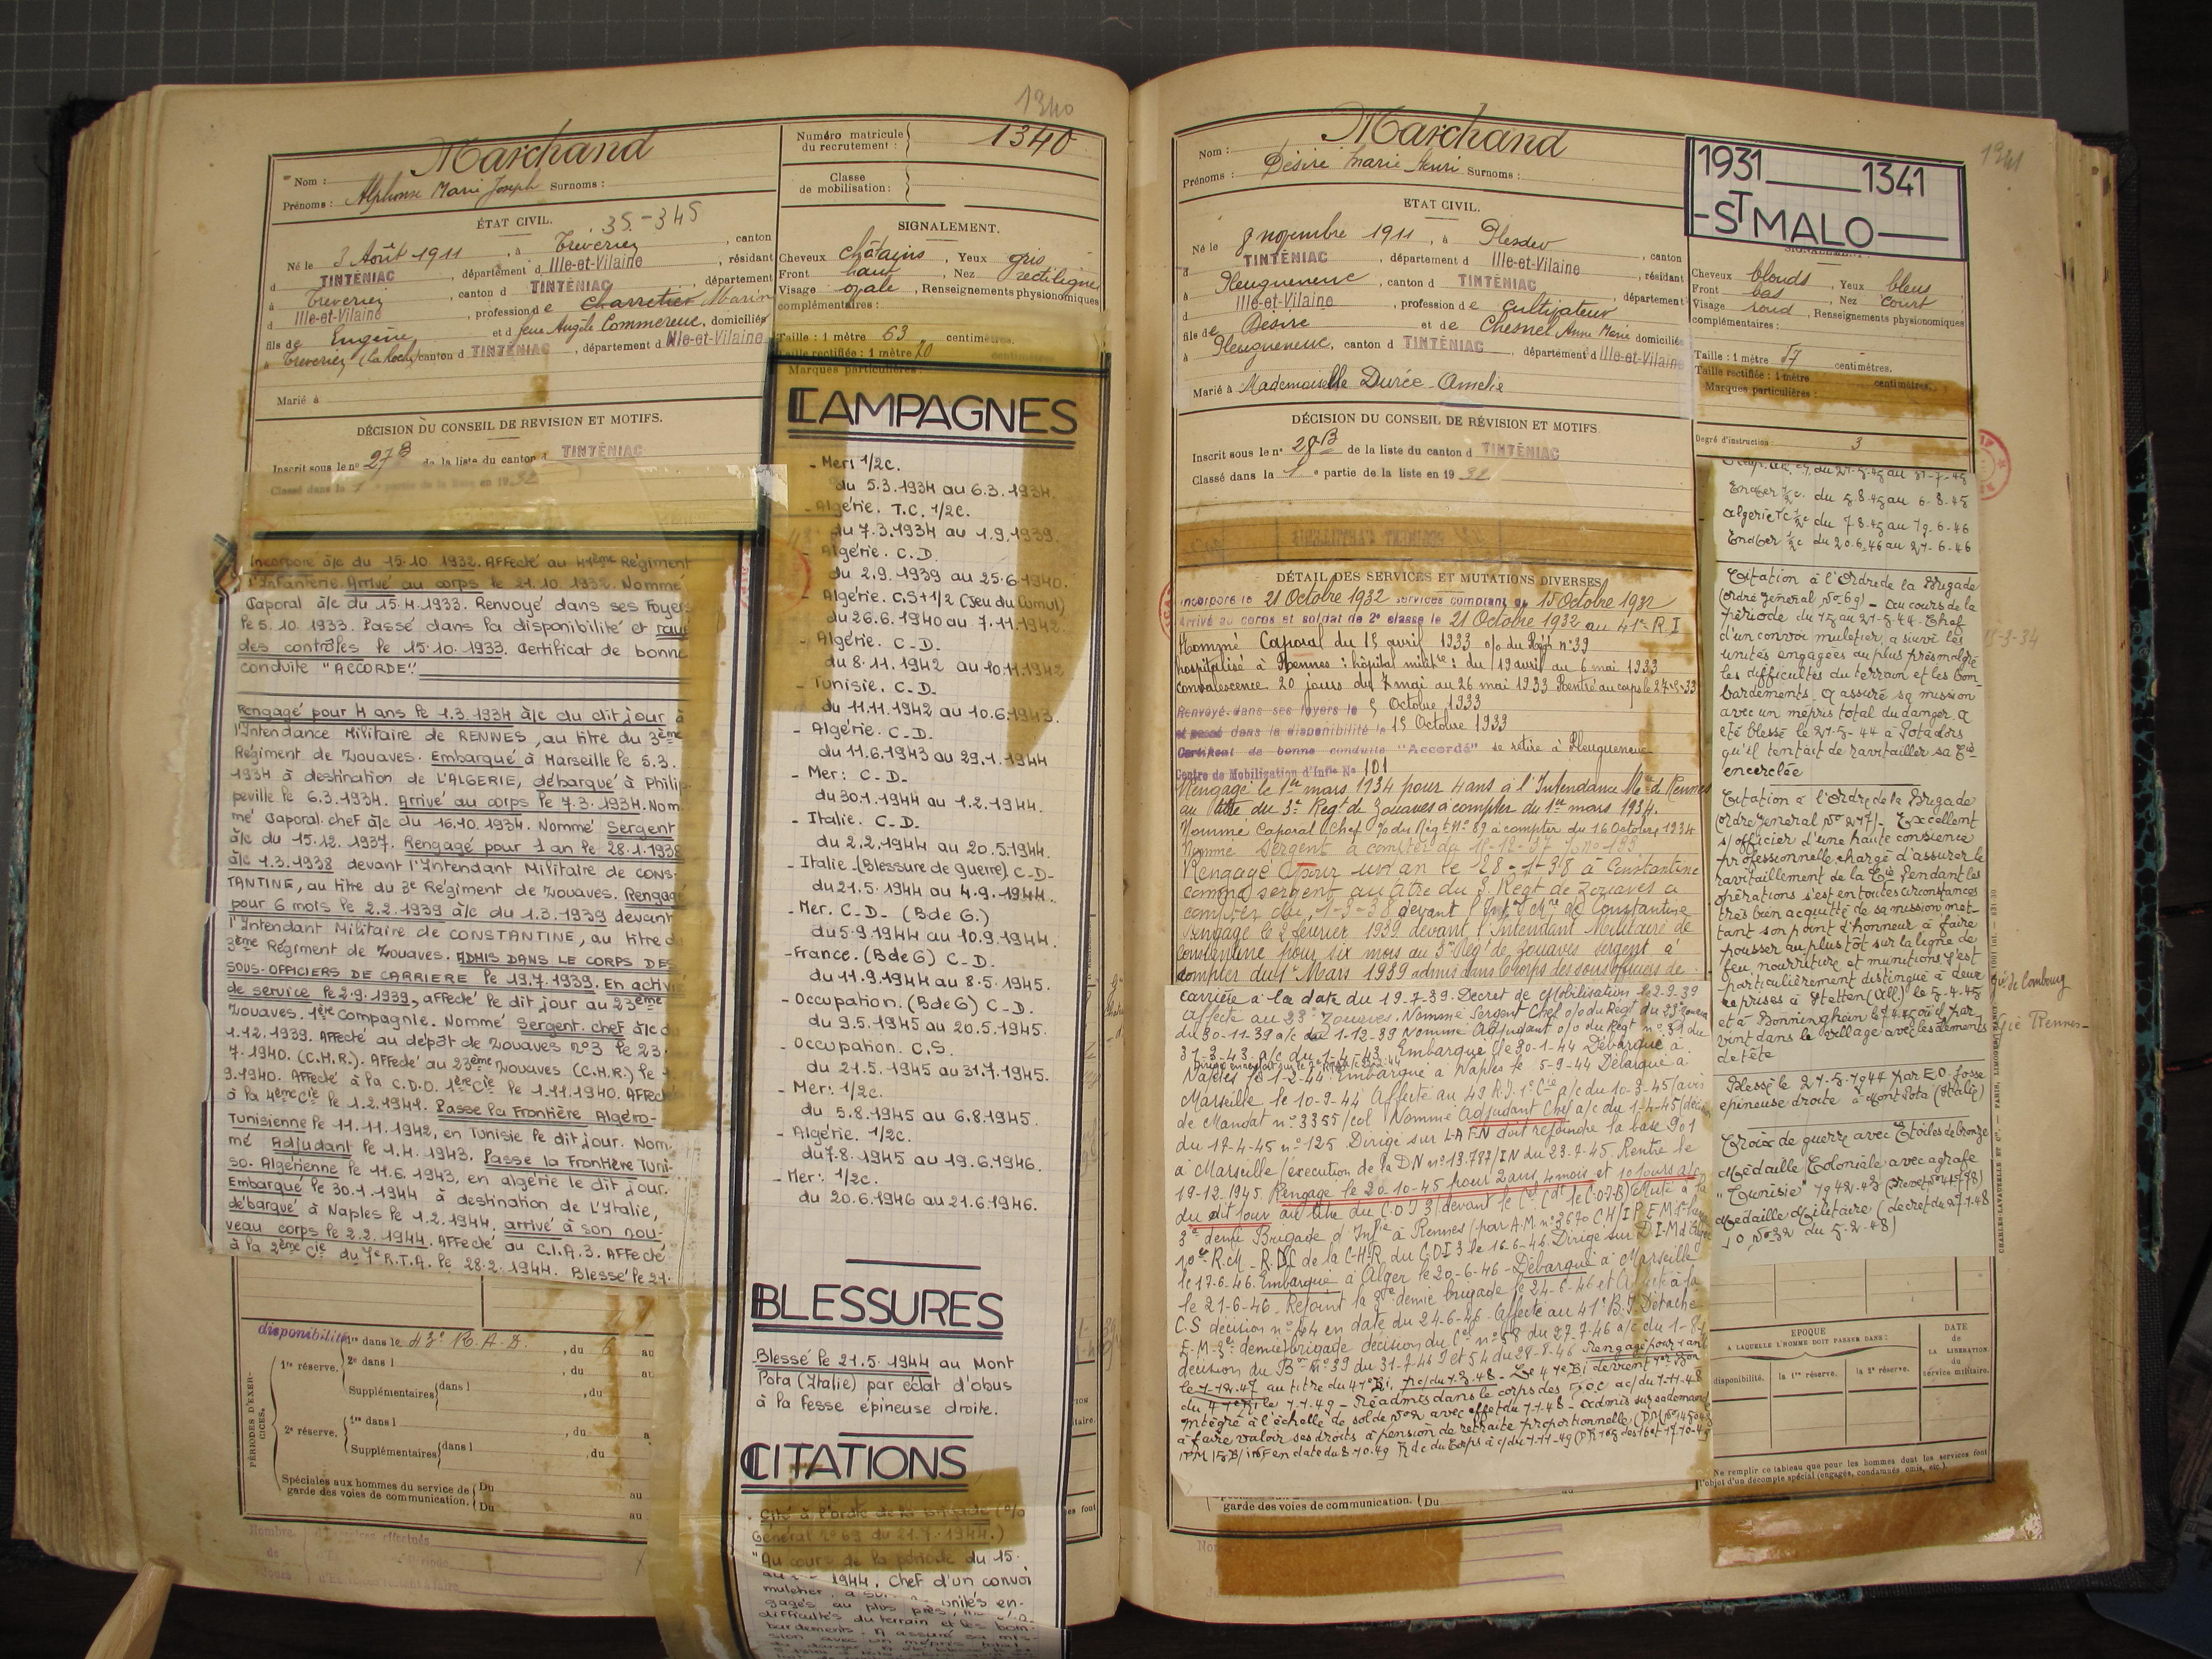 1340
Marchand
Nom :
Prénoms : Alphonse Marie Joseph Surnoms :
Numéro matricule du recrutement : 1340
Classe de mobilisation :
ÉTAT CIVIL.
35-345
Né le 3 Août 1911, à Trévérien, canton
d TINTÉNIAC, département d Ille-et-Vilaine, résidant
à Trévérien, canton d TINTÉNIAC, département
d Ille-et-Vilaine, profession de Charretier Marin
fils de Eugène et d feue Angèle Commereuc, domiciliés
à Trévérien (La Roche) canton d TINTÉNIAC, département d Ille-et-Vilaine
Marié à
SIGNALEMENT.
Cheveux châtains, Yeux gris
Front haut, Nez rectiligne
Visage ovale, Renseignements physionomiques
complémentaires :
Taille : 1 mètre 63 centimètres.
Taille rectifiée : 1 mètre 70 centimètres.
Marques particulières :
DÉCISION DU CONSEIL DE REVISION ET MOTIFS.
Inscrit sous le no 27B de la liste du canton d TINTÉNIAC
Classé dans la 1e partie de la liste en 1932
Incorporé à/c du 15.10.1932. Affecté au 41ème Régiment
d'Infanterie. Arrivé au corps le 21.10.1932. Nommé
Caporal à/c du 15.4.1933. Renvoyé dans ses Foyers
le 5.10.1933. Passé dans la disponibilité et rayé
des contrôles le 15.10.1933. Certificat de bonne
conduite "ACCORDE".
Rengagé pour 4 ans le 1.3.1934 à/c du dit jour à
l'Intendance Militaire de RENNES, au titre du 3ème
Régiment de Zouaves. Embarqué à Marseille le 5.3.
1934 à destination de L'ALGERIE, débarqué à Philip-
peville le 6.3.1934. Arrivé au corps le 7.3.1934. Nom
mé Caporal.chef à/c du 16.10.1934. Nommé Sergent
à/c du 15.12.1937. Rengagé pour 1 an le 28.1.1938
à/c 1.3.1938 devant l'Intendant Militaire de CONS-
TANTINE, au titre du 3e Régiment de Zouaves. Rengagé
pour 6 mois le 2.2.1939 à/c du 1.3.1939 devant
l'Intendant Militaire de CONSTANTINE, au titre du
3ème Régiment de Zouaves. ADMIS DANS LE CORPS DES
SOUS-OFFICIERS DE CARRIERE le 19.7.1939. En activité
de service le 2.9.1939, affecté le dit jour au 23ème
Zouaves. 1ère Compagnie. Nommé Sergent.chef à/c du
1.12.1939. Affecté au dépôt de Zouaves n°3 le 23.
7.1940. (C.H.R.). Affecté au 23ème Zouaves (C.H.R.) le 1.
9.1940. Affecté à la C.D.O. 1ère Cie le 1.11.1940. Affecté
à la 4ème Cie le 1.2.1941. Passe la Frontière Algéro-
Tunisienne le 11.11.1942, en Tunisie le dit jour. Nom-
mé Adjudant le 1.4.1943. Passe la Frontière Tuni-
so.Algérienne le 11.6.1943, en algérie le dit jour.
Embarqué le 30.1.1944 à destination de L'Italie,
débarqué à Naples le 1.2.1944, arrivé à son nou-
veau corps le 2.2.1944. Affecté au C.I.A.3. Affecté
à la 2ème Cie du 4e R.T.A. le 28.2.1944. Blessé le 21.
disponibilité dans le 43e R.A.D., du 6 au
PÉRIODES D'EXERCICES.
1re réserve.
2e dans l, du au
Supplémentaires dans l, du
2e réserve.
1re dans l, du
Supplémentaires dans l, du
Spéciales aux hommes du service de garde des voies de communication.
Du au
Du au
CAMPAGNES
- Mer: 1/2c.
du 5.3.1934 au 6.3.1934.
- Algérie. T.C. 1/2C.
du 7.3.1934 au 1.9.1939.
- Algérie. C.D.
du 2.9.1939 au 25.6.1940.
- Algérie. C.S+1/2 (Jeu du Cumul)
du 26.6.1940 au 7.11.1942.
- Algérie. C.D.
du 8.11.1942 au 10.11.1942
- Tunisie. C.D.
du 11.11.1942 au 10.6.1943.
- Algérie. C.D.
du 11.6.1943 au 29.1.1944
- Mer: C.D.
du 30.1.1944 au 1.2.1944.
- Italie. C.D.
du 2.2.1944 au 20.5.1944.
- Italie.(Blessure de guerre) C.D.
du 21.5.1944 au 4.9.1944.
- Mer. C.D. (B de G.)
du 5.9.1944 au 10.9.1944.
- France. (B de G) C.D.
du 11.9.1944 au 8.5.1945.
- Occupation. (B de G) C.D.
du 9.5.1945 au 20.5.1945.
- Occupation. C.S.
du 21.5.1945 au 31.7.1945.
- Mer: 1/2c.
du 5.8.1945 au 6.8.1945.
- Algérie. 1/2c.
du 7.8.1945 au 19.6.1946.
- Mer: 1/2c.
du 20.6.1946 au 21.6.1946.
BLESSURES
Blessé le 21.5.1944 au Mont
Pota (Italie) par éclat d'obus
à la Fesse épineuse droite.
CITATIONS
Cité à l'ordre de la brigade (O/
Général n°69 du 21.7.1944.)
"Au cours de la période du 15.
1944. Chef d'un convoi
muletier, a suivi unités en-
gagés au plus près,
difficultés du terrain et les bom-
bardements. A assuré sa mis-
sion avec un mépris total
1341
Marchand
Nom :
Prénoms : Désiré Marie Henri Surnoms :
1931 1341
-ST MALO-
ÉTAT CIVIL.
Né le 8 novembre 1911, à Plesder, canton
d TINTÉNIAC, département d Ille-et-Vilaine, résidant
à Pleugueneuc, canton d TINTÉNIAC, département
d Ille-et-Vilaine, profession de cultivateur
fils de Désiré et de Chesnel Anne Marie domiciliés
à Pleugueneuc, canton d TINTÉNIAC, département d Ille-et-Vilaine
Marié à Mademoiselle Durée Amélie
SIGNALEMENT.
Cheveux blonds, Yeux bleus
Front bas, Nez court
Visage rond, Renseignements physionomiques
complémentaires :
Taille : 1 mètre 57 centimètres.
Taille rectifiée : 1 mètre centimètres.
Marques particulières :
Degré d'instruction : 3
DÉCISION DU CONSEIL DE RÉVISION ET MOTIFS
Inscrit sous le no 28B de la liste du canton d TINTÉNIAC
Classé dans la 1e partie de la liste en 1932
DÉTAIL DES SERVICES ET MUTATIONS DIVERSES
Incorporé le 21 Octobre 1932 services comptant du 15 Octobre 1932
Arrivé au corps et soldat de 2e classe le 21 Octobre 1932 au 41e R.I
Nommé Caporal du 15 avril 1933 o/o du Régt n°39
hospitalisé à Rennes : hôpital militre : du 19 avril au 6 mai 1933
convalescence 20 jours du 7 mai au 26 mai 1933 Rentré au corps le 27-5-33
Renvoyé dans ses foyers le 5 Octobre 1933
et passé dans la disponibilité le 15 Octobre 1933
Certificat de bonne conduite "Accordé" se retire à Pleugueneuc
Centre de Mobilisation d'Infie No 101
Rengagé le 1er mars 1934 pour 4 ans à l'Intendance Mre de Rennes
au titre du 3e Régt de Zouaves à compter du 1er mars 1934.
Nommé Caporal Chef o/o du Régt N° 89 à compter du 16 Octobre 1934
Nommé Sergent à compter du 15-12-37
Rengagé pour un an le 28-1-38 à Constantine
comme sergent au titre du 3e Régt de Zouaves à
compter du 1-3-38 devant l'Intt Mre de Constantine
Rengagé le 2 février 1939 devant l'Intendant Militaire de
Constantine pour six mois au 3me Régt de Zouaves sergent à
compter du 1er Mars 1939 admis dans le corps des sous officiers de
carrière à la date du 19-7-39. Décret de Mobilisation le 2-9-39
affecté au 23e Zouaves. Nommé Sergent Chef o/o du Régt du 23e Zouaves
du 30-11-39 a/c du 1-12-39 Nommé Adjudant o/o du Régt n°31 du
31-3-43 a/c du 1-4-43. Embarqué le 30-1-44 Débarqué à
Naples le 1-2-44. Embarqué à Naples le 5-9-44 Débarqué à
Marseille le 10-9-44 Affecté au 49 R.I. 1e Cie a/c du 10-3-45 (avis
de Mandat n°3355/col Nommé Adjudant Chef a/c du 1-4-45 (décis
du 17-4-45 n°125 Dirigé sur L'A.F.N doit rejoindre la base 901
à Marseille (exécution de la DN n°13.787/IN du 23.7.45. Rentré le
19-12-1945. Rengagé le 20-10-45 pour 2 ans 4 mois et 10 jours a/c
du dit jour au titre du C.O.I 3 (devant le Ct Cdt le C.O.I.3) Muté à la
3e demi Brigade d'Infie à Rennes
10e R.M R.D.C de la C.H.R du C.O.I 3 le 16-6-46 Dirigé sur D.I.M d'Alger
le 17-6-46. Embarqué à Alger le 20-6-46 - Débarqué à Marseille
le 21-6-46 - Rejoint la 3e demie brigade le 24-6-46 et Affecté à la
C.S décision n°44 en date du 24-6-46. Affecté au 41e B.I Détaché
E.M 3e demie brigade décision du Cel n°58 du 27-7-46 a/c du 1-8-4
décision du Bon n°39 du 31-7-46 et 54 du 28-8-46 Rengagé pour 1 an
le 1-12-47 au titre du 41e Bi,
à faire valoir ses droits à pension de retraite proportionnelle
du 27-5-45 au 31-7-45
En mer 1/2c. du 5-8-45 au 6-8-45
Algérie Tc 1/2c du 7-8-45 au 19-6-46
En mer 1/2c du 20-6-46 au 21-6-46
Citation à l'Ordre de la Brigade
(ordre général n°69) - au cours de la
période du 15 au 21-5-44. Chef
d'un convoi muletier, a suivi les
unités engagées au plus près malgré
les difficultés du terrain et les bom-
bardements. a assuré sa mission
avec un mépris total du danger. a
été blessé le 21-5-44 à Pota alors
qu'il tentait de ravitailler sa Cie
encerclée
Citation à l'Ordre de la Brigade
(ordre général n°277) - Excellent
s/officier d'une haute conscience
professionnelle, chargé d'assurer le
ravitaillement de la Cie. Pendant les
opérations s'est en toutes circonstances
très bien acquitté de sa mission met-
tant son point d'honneur à faire
pousser au plus tôt sur la ligne de
feu, nourriture et munitions, s'est
particulièrement distingué à deux
reprises à Stetten (All.) le 5-4-45
et à Bonningheim le 7-4-45 où il par-
vint dans le village avec les éléments
de tête
Blessé le 21-5-1944 par E.O. fosse
épineuse droite à Mont Pota (Italie)
Croix de guerre avec Etoiles de bronze
Médaille Coloniale avec agrafe
"Tunisie" 1942-43
Médaille Militaire (décret du 27-1-48
J.O n°32 du 5-2-48)
EPOQUE
A LAQUELLE L'HOMME DOIT PASSER DANS :
disponibilité.
la 1re réserve.
la 2e réserve.
DATE
de
LA LIBÉRATION
du
service militaire.
Ne remplir ce tableau que pour les hommes dont les services font
l'objet d'un décompte spécial (engagés, condamnés, omis, etc.).
garde des voies de communication. Du